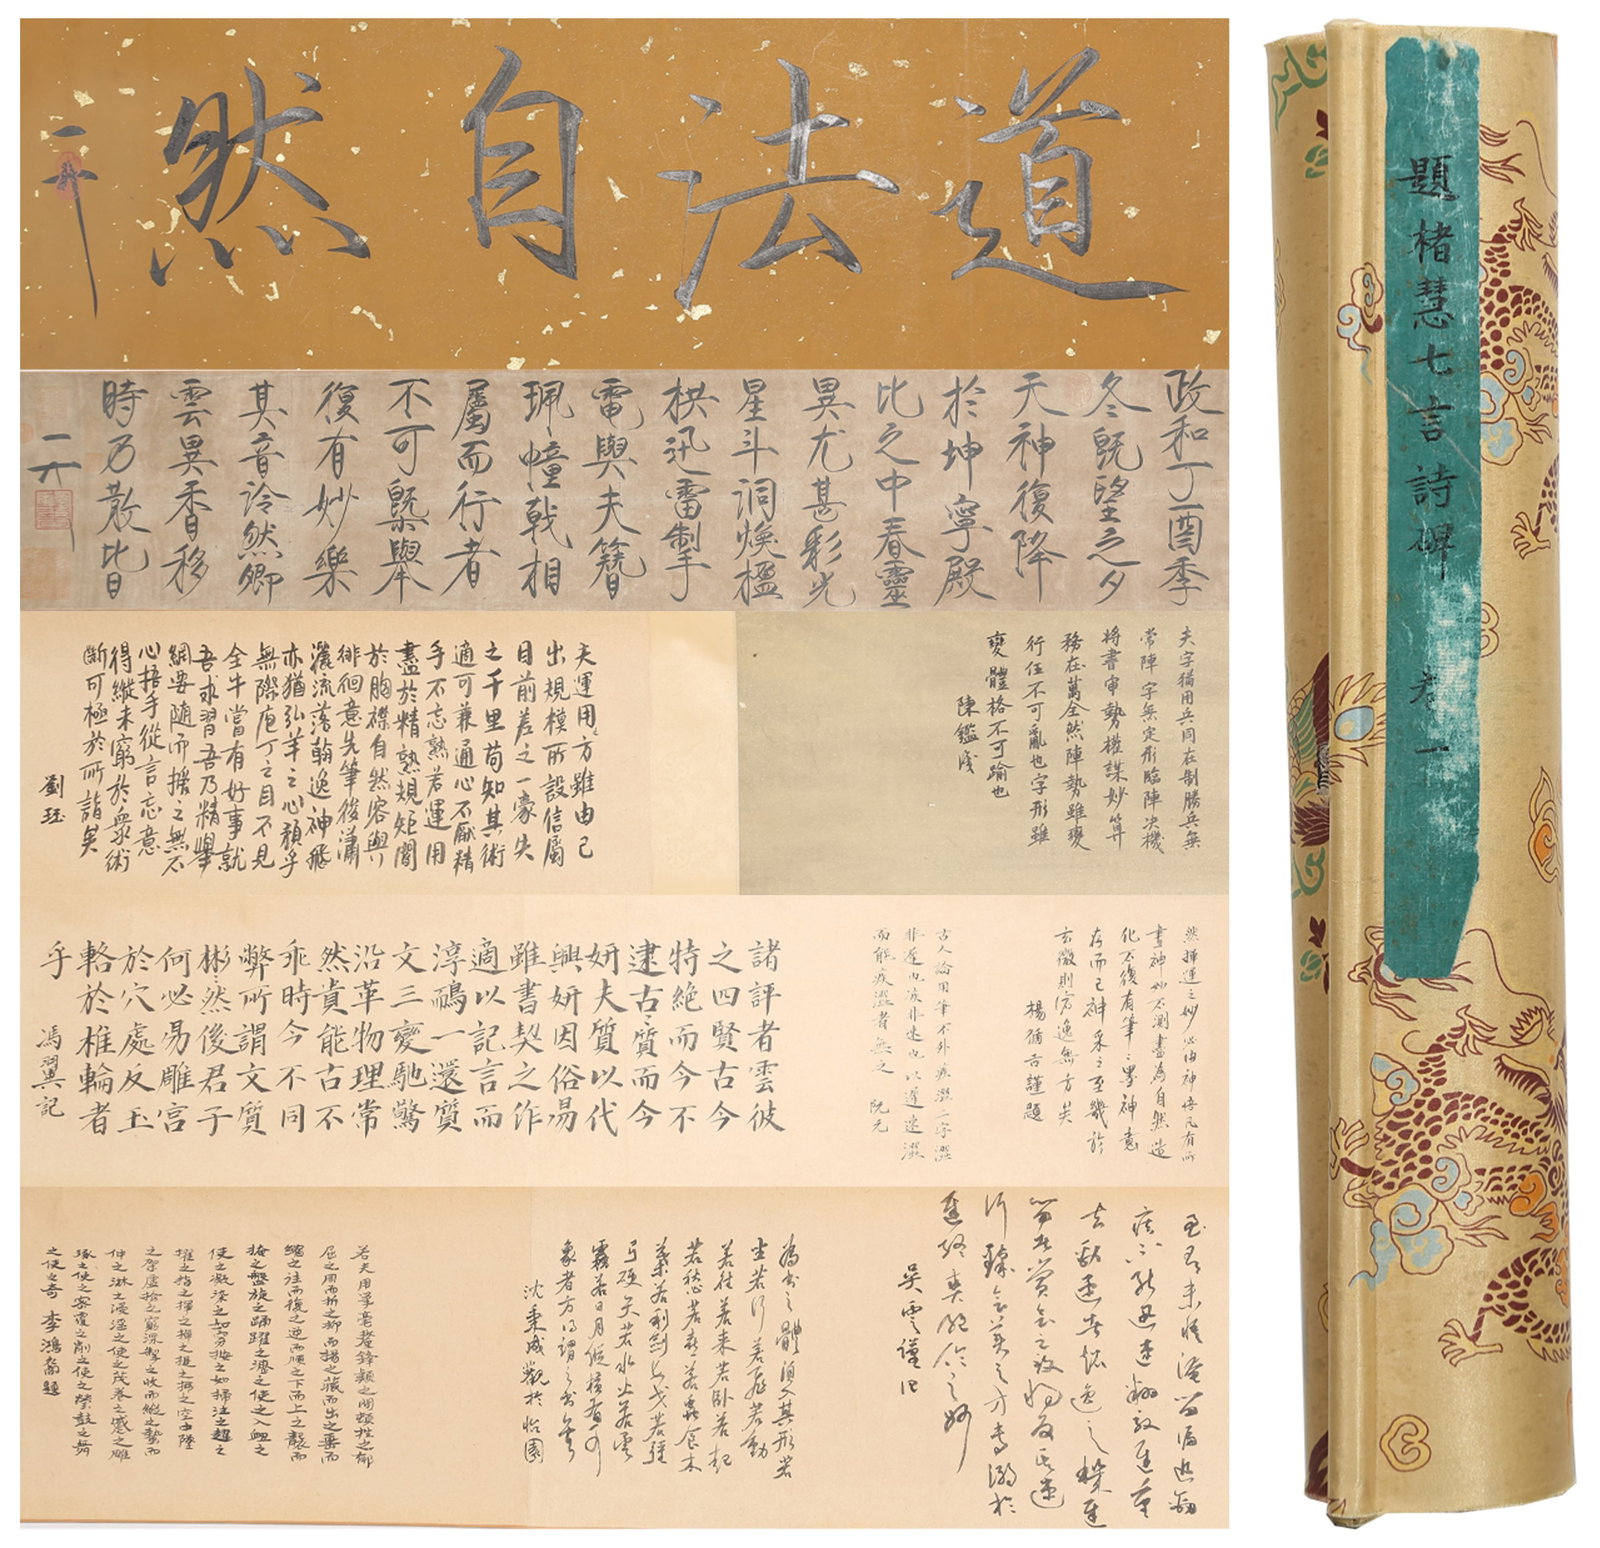 道法自然
政和丁酉季
冬旣望之夕
天神復降
於坤寧殿
比之中春靈
異尤甚彩光
星斗洞煥檻
栱迅雷掣
電與夫簪
珮幢戟相
屬而行者
不可槩舉
復有妙樂
其音泠然卿
雲異香移
時乃散比日
夫字猶用兵同在制勝兵無
常陣字無定形臨陣決機
将書审勢權謀妙算
務在萬全然陣勢雖變
行伍不可亂也字形雖
變體格不可踰也
陳鑑
天運用方雖由己
出規模所設信屬
目前差之一豪失
之千里苟知其術
適可兼通心不厭精
手不忘熟若運用
盡於精熟規矩闇
於胸襟自然容與
徘徊意先筆後瀟
灑流落翰逸神飛
亦猶弘羊之心預乎
無際庖丁之目不見
全牛當有好事就
吾求習吾乃精舉
網要隨而授之無不
心悟手從言忘意
得縱未窮於衆術
斷可極於所詣矣
劉珏
然揮運之妙必由神悟凡有所
畫神妙不測盡為自然造
化不復有筆墨神意
存而已神采之至幾於
玄微則宕逸無方矣
楊循吉謹題
古人論用筆不外疾澀二字澀
非遲也疾非速也以遲速澀
而能疾澀者無之 阮元
諸評者雲彼
之四賢古今
特絕而今不
逮古質而今
妍夫質以代
興妍因俗易
雖書契之作
適以記言而
淳醨一還質
文三變馳驚
沿革物理常
然貴能古不
乖時今不同
弊所謂文質
彬然後君子
何必易雕宮
於穴處反玉
輅於椎輪者
乎
馮翼記
至有未悟淹留偏追勁
疾不能迅速翻效遲重
夫勁速者超逸之機遲
留者賞會之致將反其速
行臻會美之方專溺於
遲終爽絕倫之妙
吳雲謹
為書之體須入其形若
坐若行若飛若動
若往若來若臥若起
若愁若喜若蟲食木
葉若利劍長戈若強
弓硬矢若水火若雲
霧若日月縱橫有可
象者方得謂之書矣
沈秉成觀於怡園
若夫用筆毫釐鋒穎之間頓挫之郁
屈之周而折之抑而揚之藏而出之垂而
縮之往而復之逆而順之下而上之襲而
掩之盤旋之踴躍之瀝之使之入衄之
使之凝染之如穿按之如掃注之趯之
擢之指之揮之掉之提之拂之空中墜
之架虛搶之窮深掣之收而縱之蟄而
伸之淋之浸淫之使之茂卷之蹙之雕
琢之使之密覆之削之使之瑩鼓之舞
之使之奇 李鴻裔題
題楮慧七言詩碑 卷一